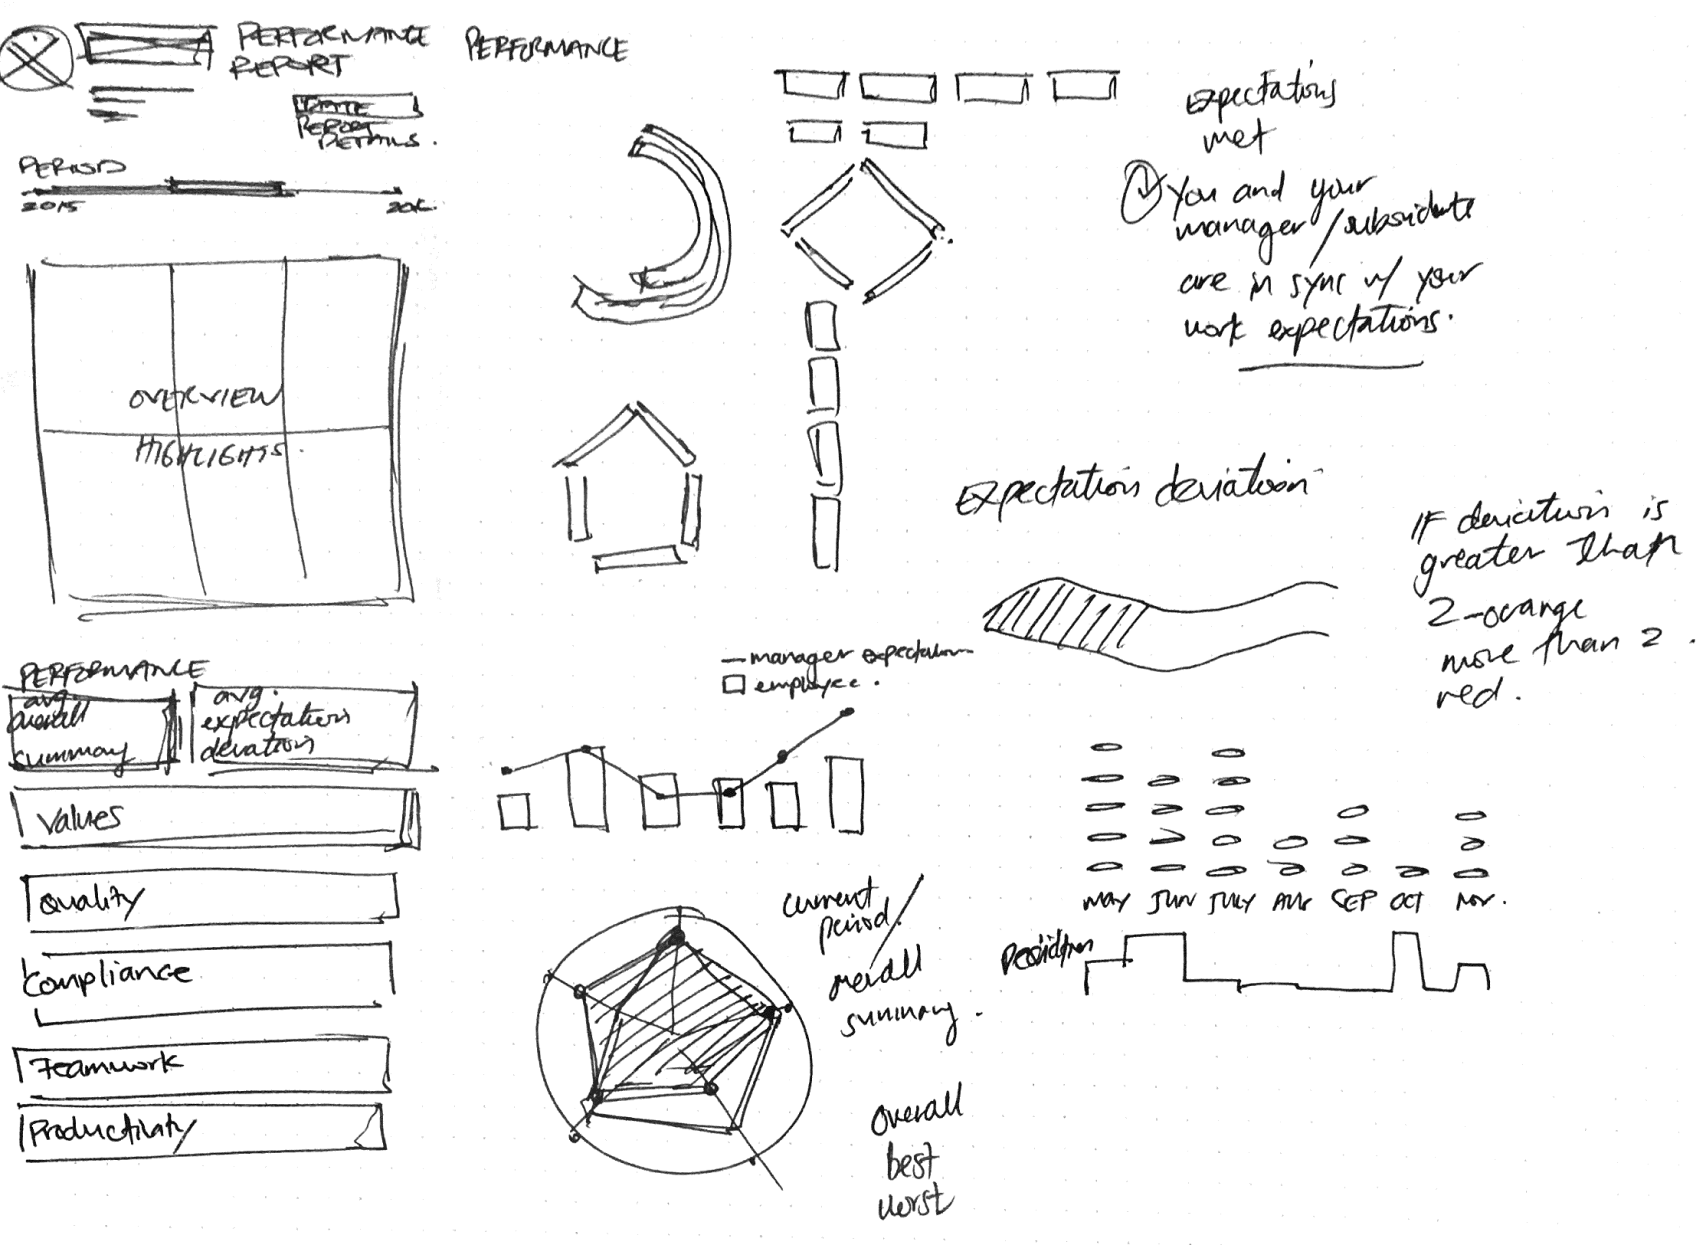 PERFORMANCE
REPORT
DATE
REPORT
DETAILS.
PERIOD
2015
OVERVIEW
HIGHLIGHTS.
PERFORMANCE
avg.
overall
summary
avg.
expectations
deviations
Values
Quality
Compliance
Teamwork
Productivity
PERFORMANCE
manager expectation
employee.
current
period/
overall
summary.
Overall
best
worst
Expectations
met
You and your
manager/subsidute
are in sync w/ your
work expectations.
Expectations deviation
IF deviation is
greater than
2-orange
more than 2.
red.
MAY JUN JULY AUG SEP OCT NOV.